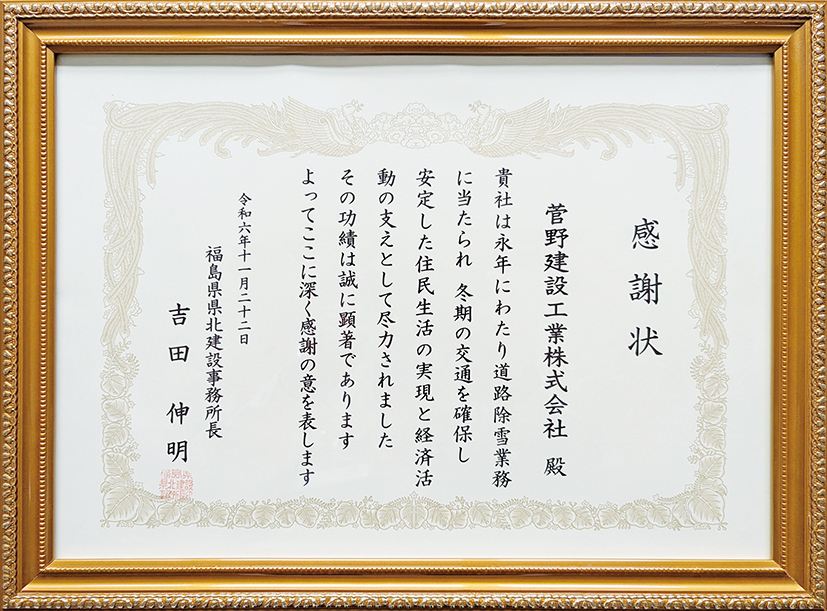 感謝状
菅野建設工業株式会社 殿
貴社は永年にわたり道路除雪業務
に当たられ 冬期の交通を確保し
安定した住民生活の実現と経済活
動の支えとして尽力されました
その功績は誠に顕著であります
よってここに深く感謝の意を表します
令和六年十一月二十二日
福島県県北建設事務所長
吉田 伸明